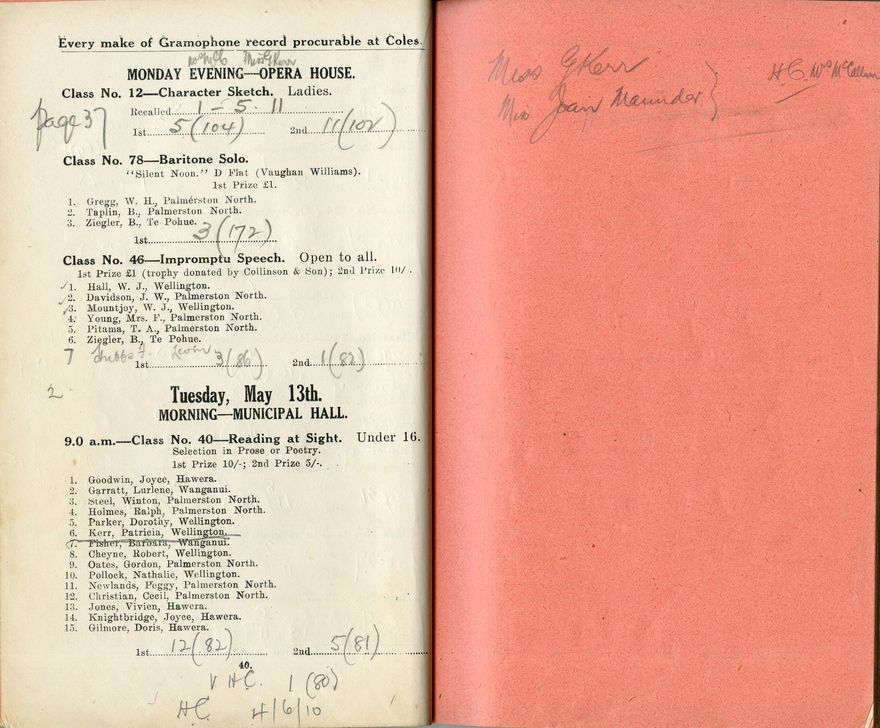 Every make of Gramophone record procurable at Coles.
Miss G Kerr
MONDAY EVENING—OPERA HOUSE.
Class No. 12—Character Sketch. Ladies.
Recalled 1 - 5 - 11
page 37
1st 5 (104) 2nd 11 (102)
Class No. 78—Baritone Solo.
"Silent Noon." D Flat (Vaughan Williams).
1st Prize £1.
1. Gregg, W. H., Palmerston North.
2. Taplin, B., Palmerston North.
3. Ziegler, B., Te Pohue.
1st 3 (172)
Class No. 46—Impromptu Speech. Open to all.
1st Prize £1 (trophy donated by Collinson & Son); 2nd Prize 10/-.
1. Hall, W. J., Wellington.
2. Davidson, J. W., Palmerston North.
3. Mountjoy, W. J., Wellington.
4. Young, Mrs. F., Palmerston North.
5. Pitama, T. A., Palmerston North.
6. Ziegler, B., Te Pohue.
7 F. Levin
1st 3 (86) 2nd 1 (82)
2
Tuesday, May 13th.
MORNING—MUNICIPAL HALL.
9.0 a.m.—Class No. 40—Reading at Sight. Under 16.
Selection in Prose or Poetry.
1st Prize 10/-; 2nd Prize 5/-.
1. Goodwin, Joyce, Hawera.
2. Garratt, Lurlene, Wanganui.
3. Steel, Winton, Palmerston North.
4. Holmes, Ralph, Palmerston North.
5. Parker, Dorothy, Wellington.
6. Kerr, Patricia, Wellington.
7. Fisher, Barbara, Wanganui.
8. Cheyne, Robert, Wellington.
9. Oates, Gordon, Palmerston North.
10. Pollock, Nathalie, Wellington.
11. Newlands, Peggy, Palmerston North.
12. Christian, Cecil, Palmerston North.
13. Jones, Vivien, Hawera.
14. Knightbridge, Joyce, Hawera.
15. Gilmore, Doris, Hawera.
1st 12 (82) 2nd 5 (81)
40.
V HC. 1 (80)
HC. 4/6/10
Miss G Kerr
Miss Joan Maunder
H.C. Ws McCallum